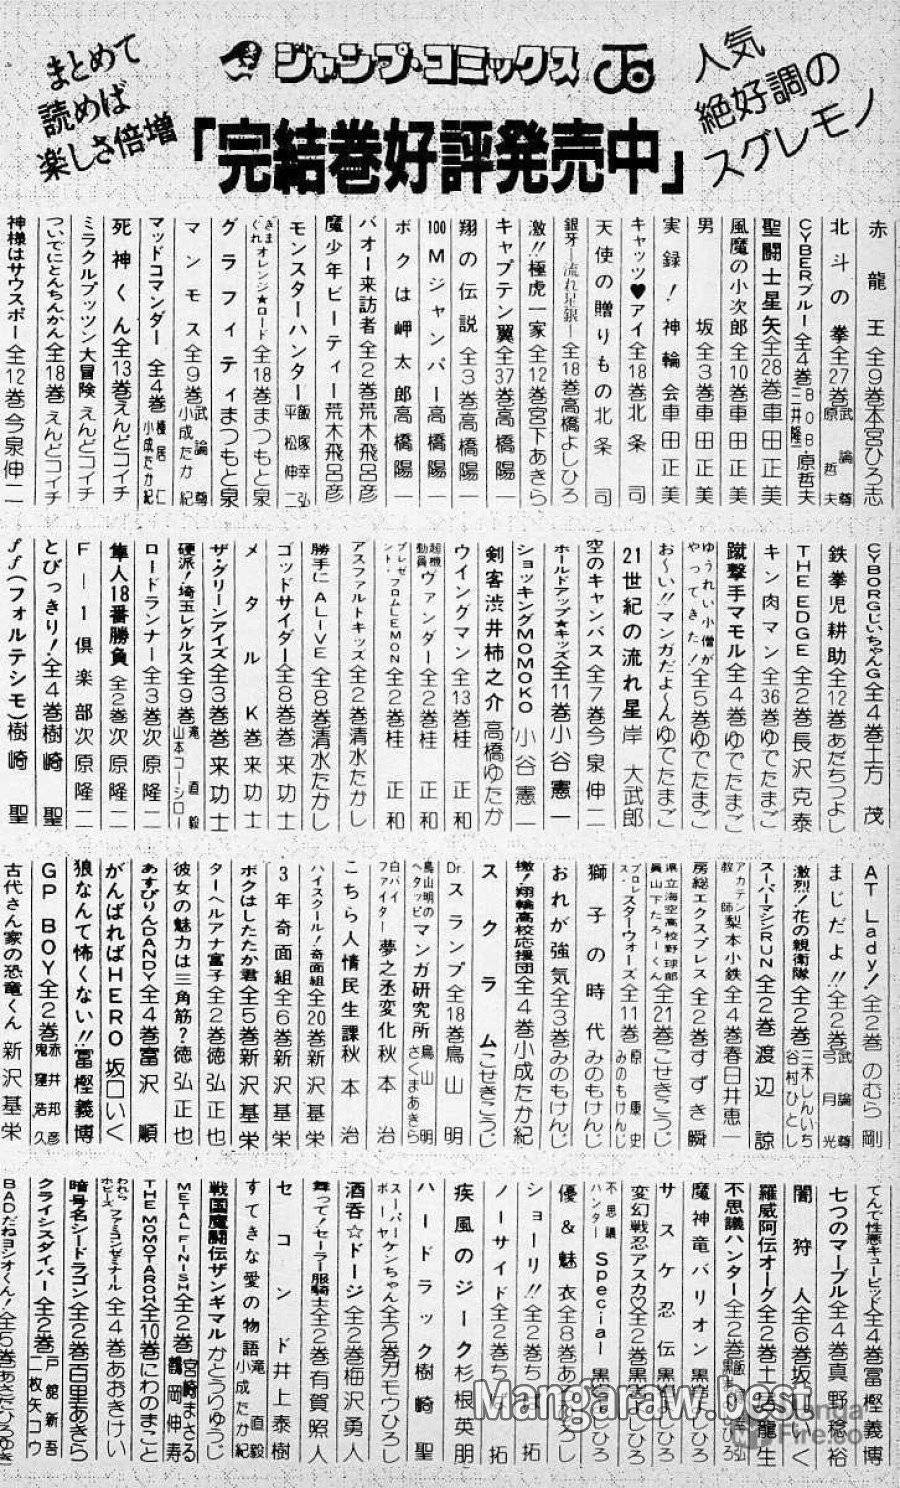 まとめて
読めば
楽しさ倍増
ジャンプ・コミックス
人気
絶好調の
スグレモノ
「完結巻好評発売中」
赤龍王 全9巻 本宮ひろ志
北斗の拳 全27巻 武論尊 原哲夫
CYBERブルー 全4巻 BOB・原哲夫 三井隆一
聖闘士星矢 全28巻 車田正美
風魔の小次郎 全10巻 車田正美
男坂 全3巻 車田正美
実録!神輪会 車田正美
キャッツ♥アイ 全18巻 北条司
天使の贈りもの 北条司
銀牙―流れ星銀 全18巻 高橋よしひろ
激!!極虎一家 全12巻 宮下あきら
キャプテン翼 全37巻 高橋陽一
翔の伝説 全3巻 高橋陽一
100Mジャンパー 高橋陽一
ボクは岬太郎 高橋陽一
バオー来訪者 全2巻 荒木飛呂彦
魔少年ビーティー 荒木飛呂彦
モンスターハンター 飯塚幸弘 平松伸二
きまぐれオレンジ★ロード 全18巻 まつもと泉
グラフィティ まつもと泉
マンモス 全9巻 武論尊 小成たか紀
マッドコマンダー 全4巻 榛居仁 小成たか紀
死神くん 全13巻 えんどコイチ
ミラクルプッツン大冒険 えんどコイチ
ついでにとんちんかん 全18巻 えんどコイチ
神様はサウスポー 全12巻 今泉伸二
CYBORGじいちゃんG 全4巻 土方茂
鉄拳児耕助 全12巻 あだちつよし
THE EDGE 全2巻 長沢克泰
キン肉マン 全36巻 ゆでたまご
蹴撃手マモル 全4巻 ゆでたまご
ゆうれい小僧がやってきた! 全5巻 ゆでたまご
お〜い!!マンガだよ〜ん ゆでたまご
21世紀の流れ星 岸大武郎
空のキャンバス 全7巻 今泉伸二
ホールドアップ★キッズ 全11巻 小谷憲一
ショッキングMOMOKO 小谷憲一
剣客渋井柿之介 高橋ゆたか
ウイングマン 全13巻 桂正和
超機動員ヴァンダー 全2巻 桂正和
プレゼント・フロムLEMON 全2巻 桂正和
アスファルトキッズ 全2巻 清水たかし
勝手にALIVE 全8巻 清水たかし
ゴッドサイダー 全8巻 巻来功士
メタルK 巻来功士
ザ・グリーンアイズ 全3巻 巻来功士
硬派!埼玉レグルス 全9巻 滝直毅 山本コーシロー
ロードランナー 全3巻 次原隆二
隼人18番勝負 全2巻 次原隆二
F―1倶楽部 次原隆二
とびっきり! 全4巻 樹崎聖
ff(フォルテシモ) 樹崎聖
AT Lady! 全2巻 のむら剛
まじだよ!! 全2巻 武論尊 弓月光
激烈!花の親衛隊 全2巻 三木しんいち 谷村ひとし
スーパーマシンRUN 全2巻 渡辺諒
アカテン教師梨本小鉄 全4巻 春日井恵一
房総エクスプレス 全2巻 すずき瞬
県立海空高校野球部員山下たろーくん 全21巻 こせきこうじ
プロレス・スターウォーズ 全11巻 原康史 みのもけんじ
獅子の時代 みのもけんじ
おれが強気 全3巻 みのもけんじ
檄!翔輪高校応援団 全4巻 小成たか紀
スクラム こせきこうじ
Dr.スランプ 全18巻 鳥山明
鳥山明のヘタッピマンガ研究所 鳥山明 さくまあきら
白バイファイター 夢之丞変化 秋本治
こちら人情民生課 秋本治
ハイスクール!奇面組 全20巻 新沢基栄
3年奇面組 全6巻 新沢基栄
ボクはしたたか君 全5巻 新沢基栄
ターヘルアナ富子 全2巻 徳弘正也
彼女の魅力は三角筋? 徳弘正也
あすぴりんDANDY 全4巻 富沢順
がんばればHERO 坂口いく
狼なんて怖くない!! 冨樫義博
GP BOY 全2巻 赤井邦彦 鬼窪浩久
古代さん家の恐竜くん 新沢基栄
てんで性悪キューピッド 全4巻 冨樫義博
七つのマーブル 全4巻 真野稔裕
闇狩人 全6巻 坂口いく
羅威阿伝オーグ 全2巻 土居龍生
不思議ハンター 全2巻 飯塚幸弘
魔神竜バリオン 黒岩よしひろ
サスケ忍伝 黒岩よしひろ
変幻戦忍アスカ♡ 全2巻 黒岩よしひろ
不思議ハンターSpecial 黒岩よしひろ
優&魅衣 全8巻 あやひろし
ショーリ!! 全2巻 ちば拓
ノーサイド 全2巻 ちば拓
疾風のジーク 杉根英朋
ハードラック 樹崎聖
スーパーボーヤケンちゃん 全2巻 ガモウひろし
酒呑☆ドージ 全2巻 梅沢勇人
舞って!セーラー服騎士 全2巻 有賀照人
セコンド 井上泰樹
すてきな愛の物語 滝直毅 小成たか紀
戦国魔闘伝ザンギマル かとうりゅうじ
METAL FINISH 全2巻 宮崎まさる 鶴岡伸寿
THE MOMOTAROH 全10巻 にわのまこと
われらホビーズ ファミコンゼミナール 全4巻 あおきけい
暗号名シードラゴン 全2巻 百里あきら
クライシスダイバー 全2巻 戸舘新吾 二枚矢コウ
BADだねヨシオくん! 全5巻 あさだひろゆき
Mangaraw.best